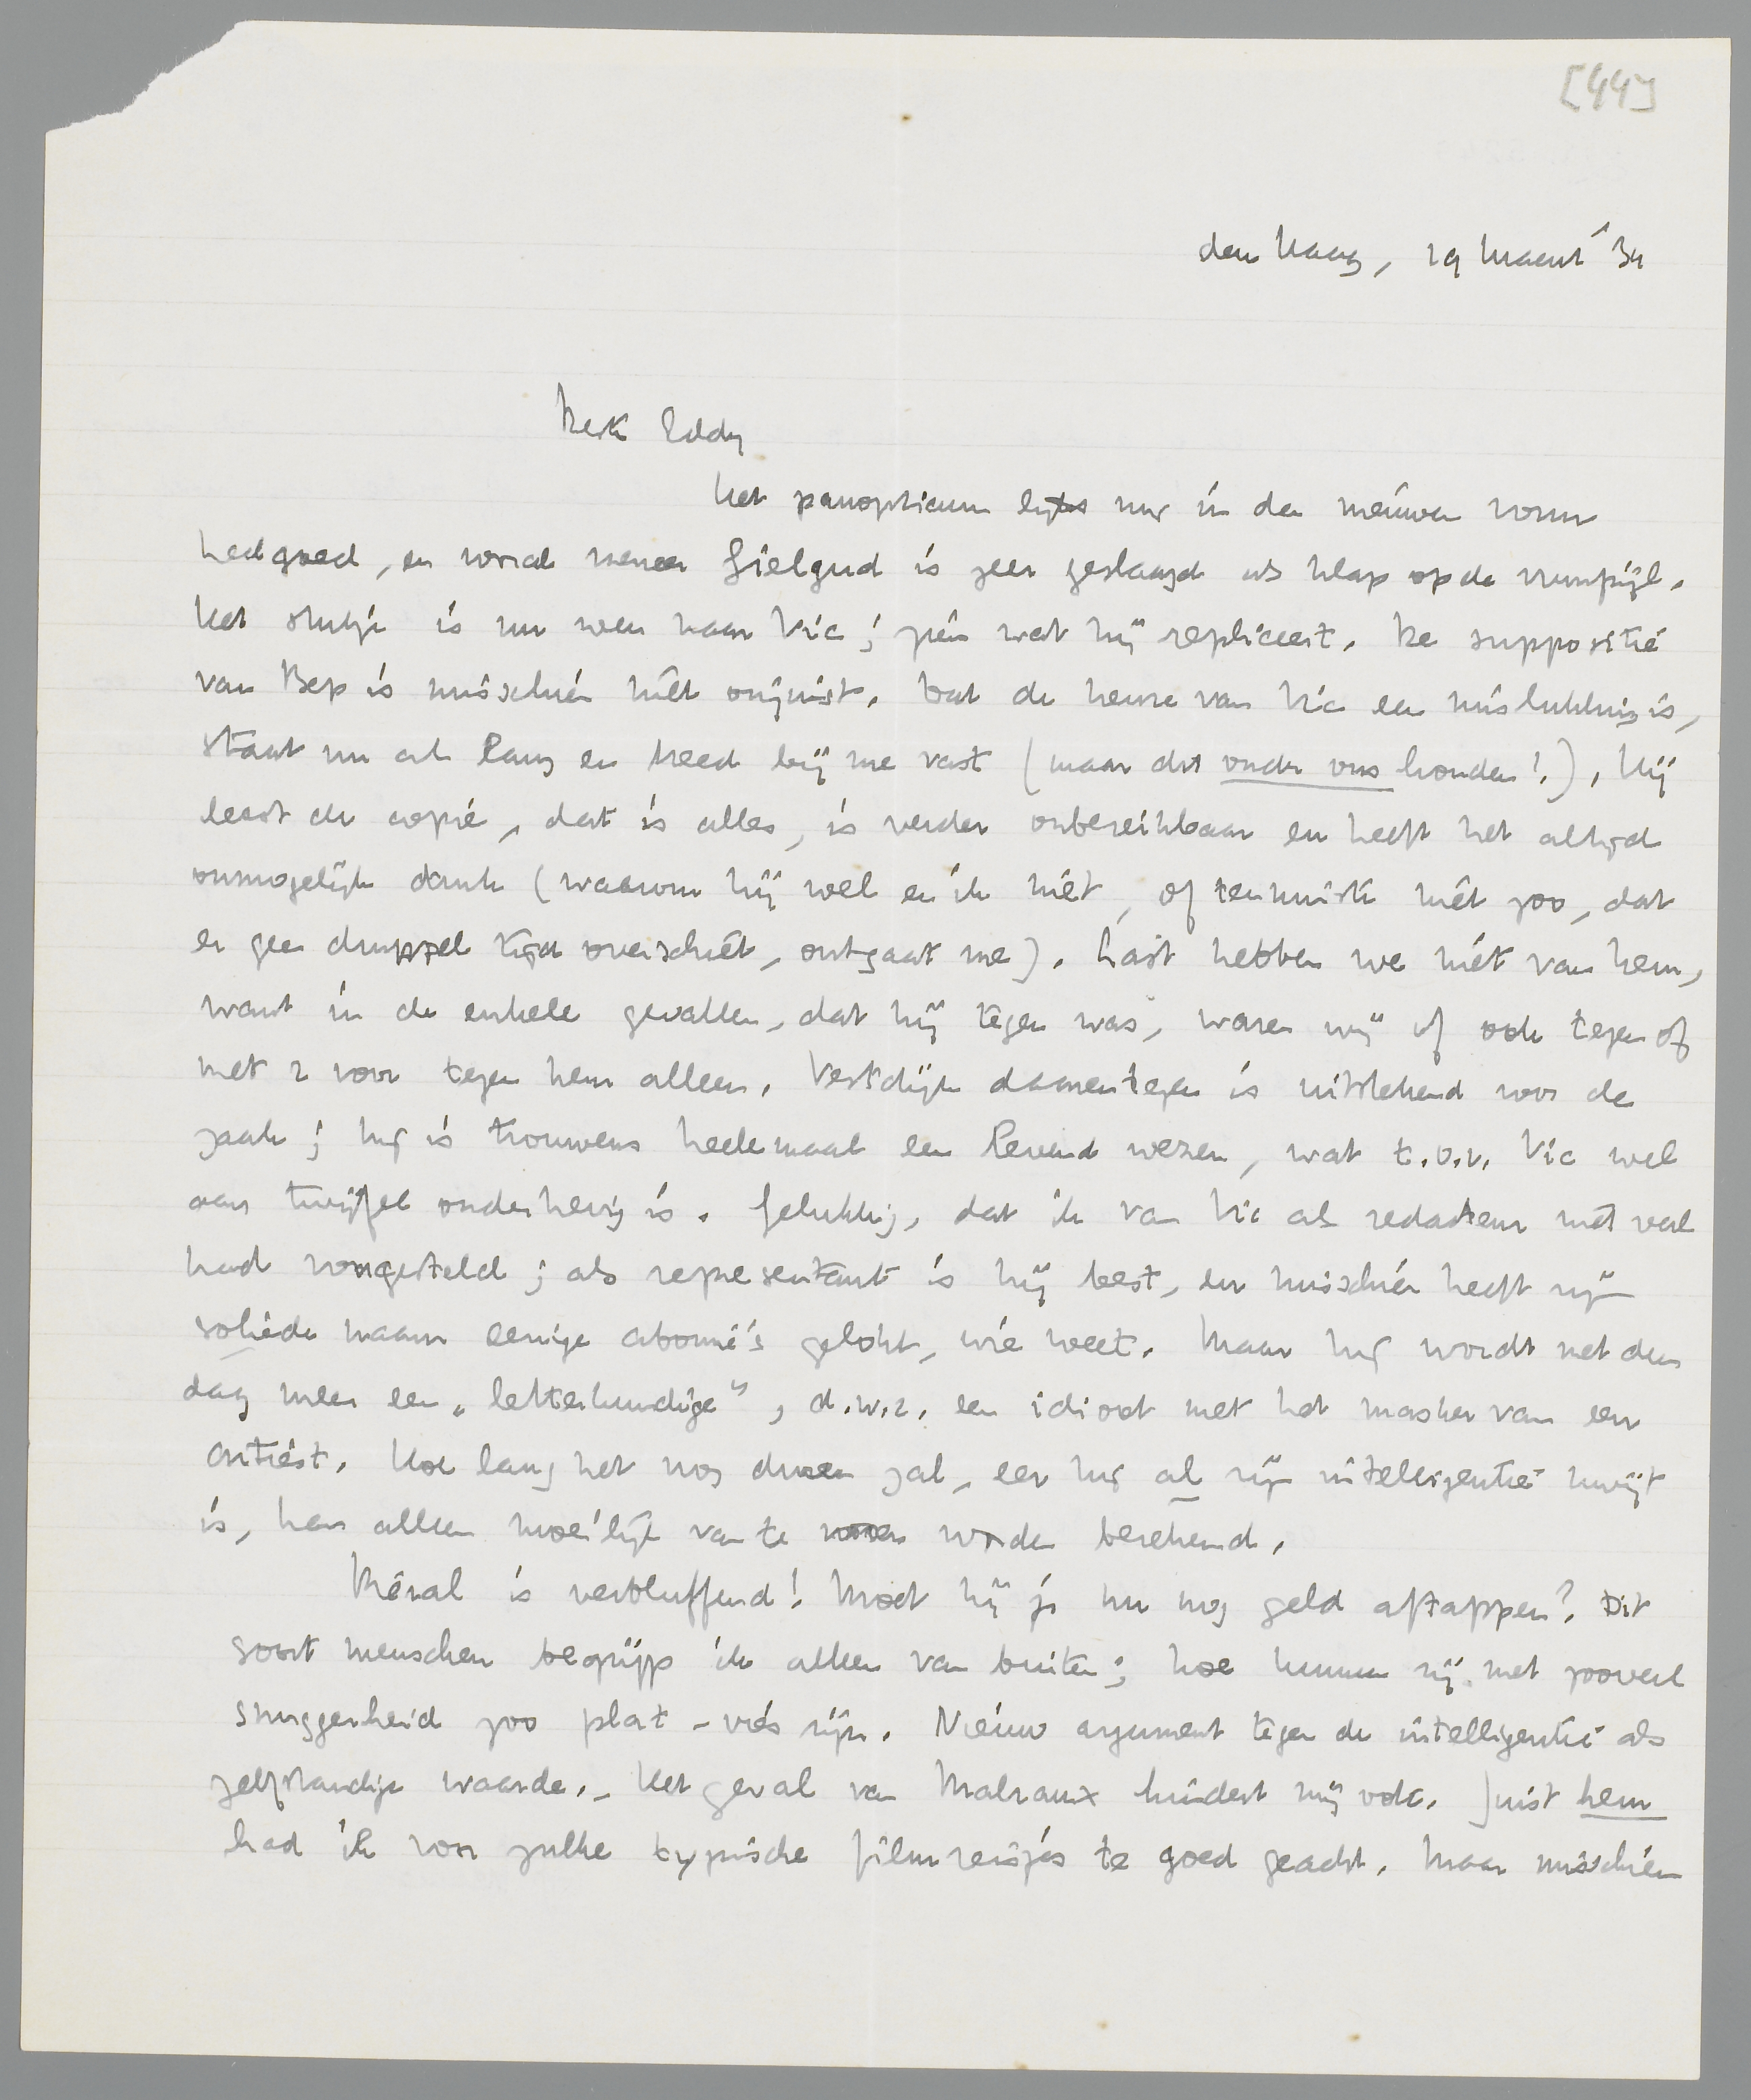 [44]
den Haag, 19 Maart '34
Beste Eddy
Het panopticum lijkt mij in den nieuwen vorm
heel goed, en vooral meneer Gielgud is zeer geslaagd als klap op de vuurpijl.
Het stukje is nu weer naar Vic; zien wat hij repliceert. De suppositie
van Bep is misschien niet onjuist. Dat de keuze van Vic een mislukking is,
staat nu al lang en breed bij me vast (maar dit onder ons houden!). Hij
leest de copie, dat is alles, is verder onbereikbaar en heeft het altijd
onmogelijk druk (waarom hij wel en ik niet, of tenminste niet zoo, dat
er geen druppel tijd overschiet, ontgaat me). Last hebben we niet van hem,
want in de enkele gevallen, dat hij tegen was, waren wij of ook tegen of
met 2 voor tegen hem alleen. Vestdijk daarentegen is uitstekend voor de
zaak; hij is trouwens heelemaal een levend wezen, wat t.o.v. Vic wel
aan twijfel onderhevig is. Gelukkig, dat ik van Vic als redacteur niet veel
had voorgesteld; als representant is hij best, en misschien heeft zijn
soliede naam eenige abonné's gelokt, wie weet. Maar hij wordt met den
dag meer een „letterkundige", d.w.z. een idioot met het masker van een
artiest. Hoe lang het nog duren zal, eer hij al zijn intelligentie kwijt
is, kan alleen moeilijk van te voren worden berekend.
Méral is verbluffend! Moet hij je nu nog geld aftappen? Dit
soort menschen begrijp ik alleen van buiten; hoe kunnen zij met zooveel
snuggerheid zoo plat-vies zijn. Nieuw argument tegen de intelligentie als
zelfstandige waarde. – Het geval van Malraux hindert mij ook. Juist hem
had ik voor zulke typische filmreisjes te goed geacht. Maar misschien